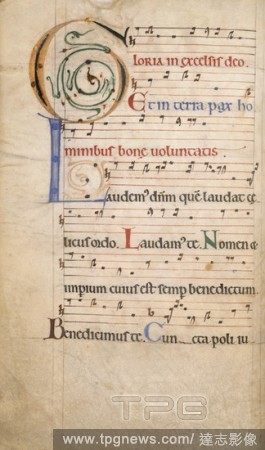 Gloria in excelsis deo.
Et in terra pax ho
minibus bone voluntatis.
Laudem' dnm quē laudat cę
licus ordo. Laudam' te. Nomen &
impium cuius est semp benedictum
Benedicimus te. Cunctta poli iu
TPG
www.tpgnews.com / 達志影像